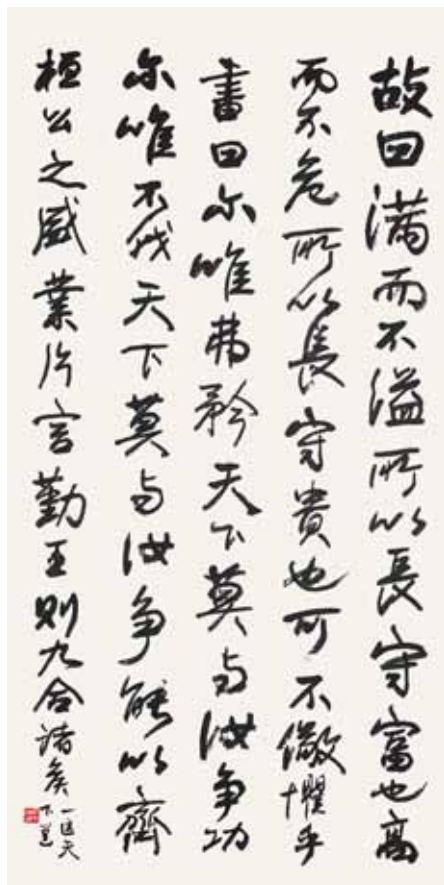 故曰满而不溢所以長守富也高
而不危所以長守貴也可不儆懼乎
書曰尔唯弗矜天下莫与汝争功
尔唯不伐天下莫与汝争能以齊
桓公之盛業片言勤王則九合諸侯
一匡天
下